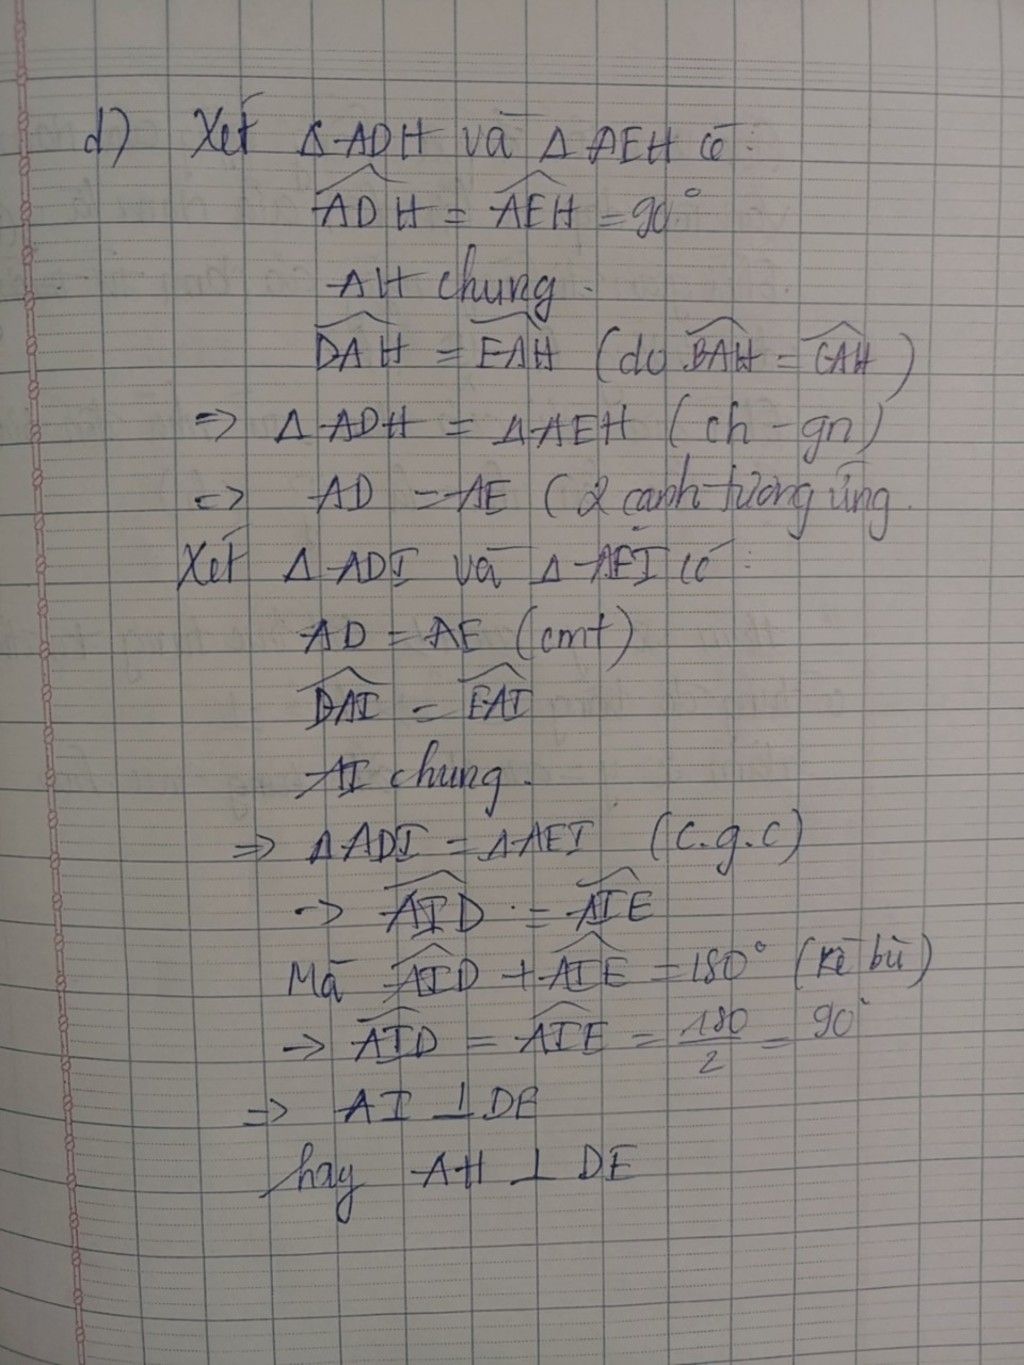 d) Xét Δ ADH và Δ AEH có:
\widehat{ADH} = \widehat{AEH} = 90°
AH chung.
\widehat{DAH} = \widehat{EAH} (do \widehat{BAH} = \widehat{CAH})
=> Δ ADH = Δ AEH (ch - gn)
=> AD = AE (2 cạnh tương ứng.
Xét Δ ADI và Δ AEI có:
AD = AE (cmt)
\widehat{DAI} = \widehat{EAI}
AI chung.
=> Δ ADI = Δ AEI (c.g.c)
-> \widehat{AID} = \widehat{AIE}
Mà \widehat{AID} + \widehat{AIE} = 180° (kề bù)
-> \widehat{AID} = \widehat{AIE} = \frac{180}{2} = 90°
=> AI ⊥ DE
hay AH ⊥ DE